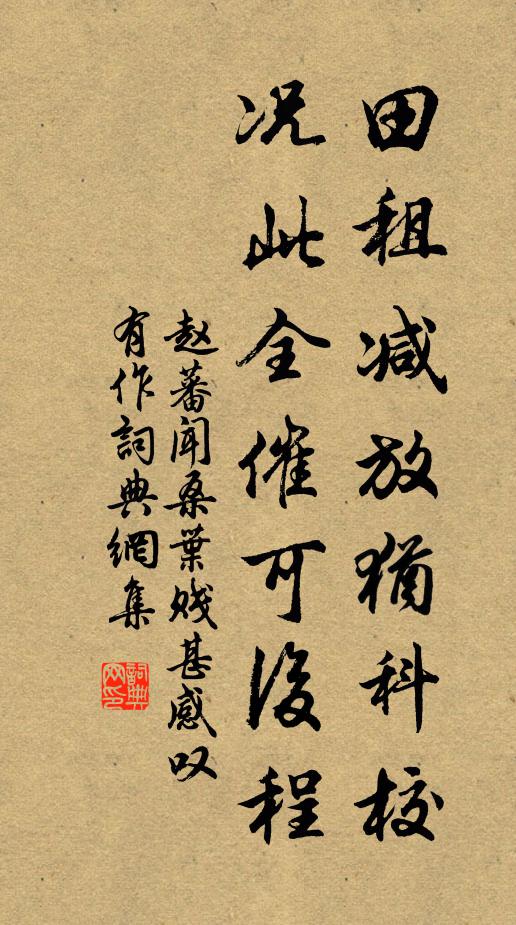 田租减放猶科校
况此全催可後程
赵蕃闻桑葉贱甚感叹
有作詞典網集
詞典網印